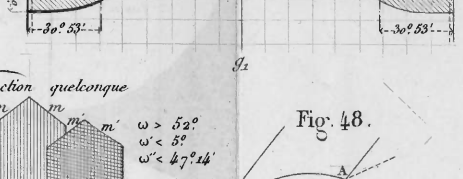 30º. 53'
30º. 53'
g1
ction quelconque
m m m'
ω > 52º.
ω' < 5º.
ω" < 47º. 14'
Fig. 48.
A